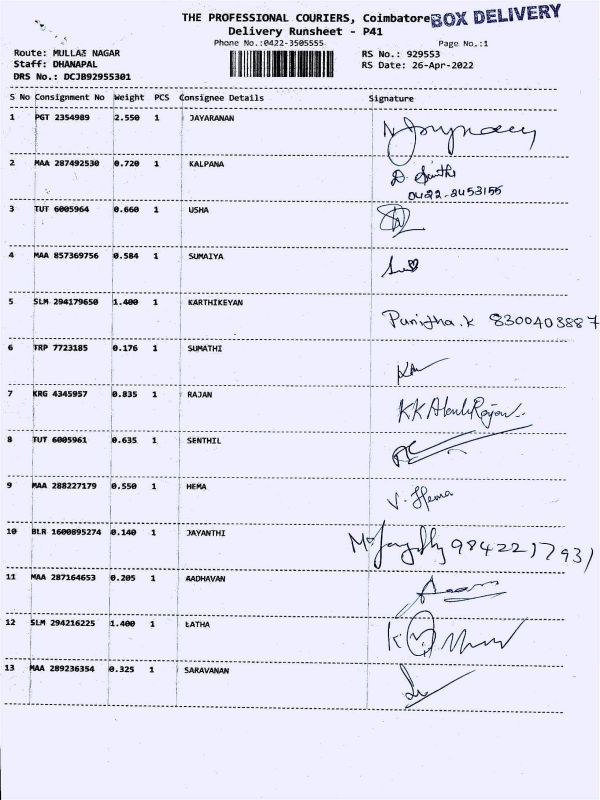 THE PROFESSIONAL COURIERS, Coimbatore BOX DELIVERY
Delivery Runsheet - P41
Phone No.:0422-3505555 Page No.:1
Route: MULLAI NAGAR RS No.: 929553
Staff: DHANAPAL RS Date: 26-Apr-2022
DRS No.: DCJB92955301
S No Consignment No Weight PCS Consignee Details Signature
1 PGT 2354989 2.550 1 JAYARANAN
2 MAA 287492530 0.720 1 KALPANA D. Santhi
0422-2453155
3 TUT 6005964 0.660 1 USHA
4 MAA 857369756 0.584 1 SUMAIYA
5 SLM 294179650 1.400 1 KARTHIKEYAN Punitha.K 8300403887
6 TRP 7723185 0.176 1 SUMATHI
7 KRG 4345957 0.835 1 RAJAN
8 TUT 6005961 0.635 1 SENTHIL
9 MAA 288227179 0.550 1 HEMA V. Hema
10 BLR 1600895274 0.140 1 JAYANTHI 9842217931
11 MAA 287164653 0.205 1 AADHAVAN
12 SLM 294216225 1.400 1 LATHA
13 MAA 289236354 0.325 1 SARAVANAN